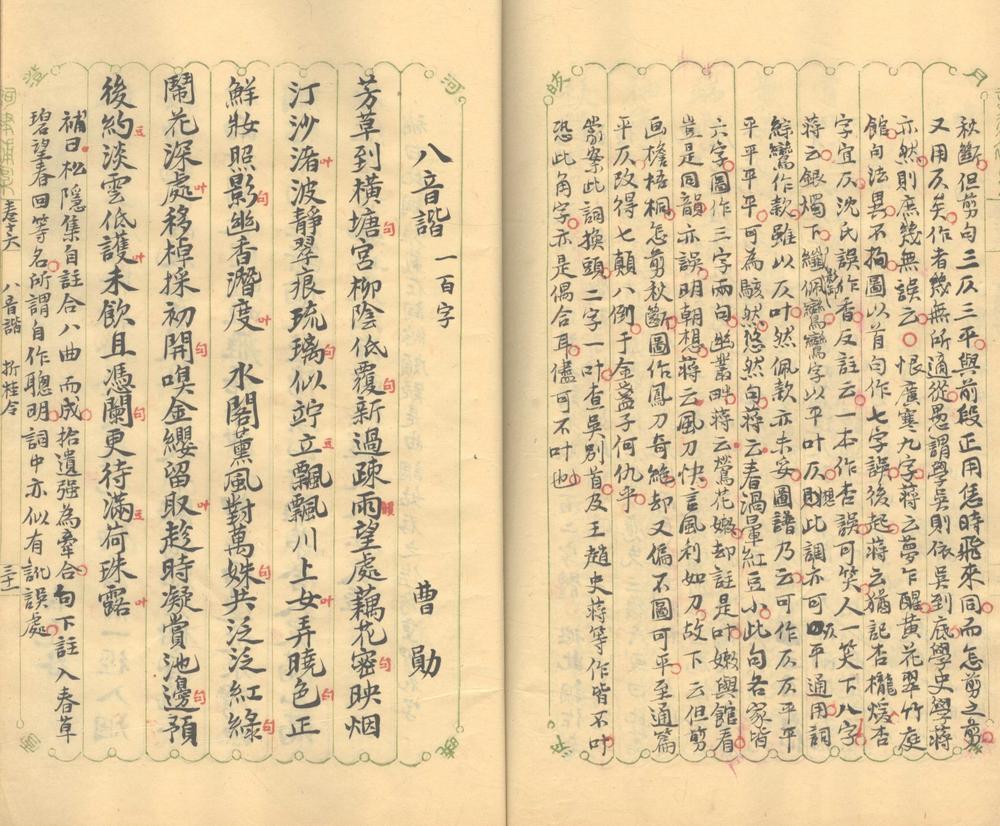 秋斷但剪句三仄三平與前段正用恁時飛來同而怎剪之剪
又用仄矣作者幾無所適從愚謂學吳則依吳到底學史學蔣
亦然則庶幾無誤云　恨廣寒九字蔣云夢乍醒黃花翠竹庭
館句法異不拘圖以首句作七字誤後起蔣云猶記杏櫳煖杏
字宜仄沈氏誤作香反註云一本作杏誤可笑人一笑下八字
蔣云銀燭下纖佩鸞字以平叶仄則此調亦可平仄通用詞
綜鸞作款雖以仄叶然佩款亦未妥圖譜乃云可作仄仄平平
平平平平可為駭然悠然句蔣云春渦暈紅豆小此句各家皆
六字圖作三字兩句幽叢畔蔣云鶯花嫩却註是叶嫩與館看
豈是同韻亦誤明朝想蔣云風刀快言風利如刀故下云但剪
画檐梧桐怎剪秋斷圖作鳳刀奇絕却又偏不圖可平至通篇
平仄改得七顛八倒于金盞子何仇乎
嘗察此詞換頭二字一叶查吳別首及王趙史蔣等作皆不叶
恐此角字亦是偶合耳儘可不叶也
八音諧　一百字　曹勛
芳草到橫塘句宮柳陰低覆句新過疎雨韻望處藕花密句映烟
汀沙渚叶波靜翠痕琉璃句似竚立豆飄飄川上女叶弄曉色句正
鮮妝照影句幽香潛度叶　水閣薰風對萬姝句共泛泛紅綠句
鬧花深處叶移棹採初開句嗅金纓留取叶趁時凝賞池邊句預
後約豆淡雲低護叶未飲且憑闌句更待滿豆荷珠露叶
補曰松隱集自註合八曲而成拾遺强為牽合句下註入春草
碧望春回等名所謂自作聰明詞中亦似有訛誤處
卷十六　八音諧　折桂令　三十一